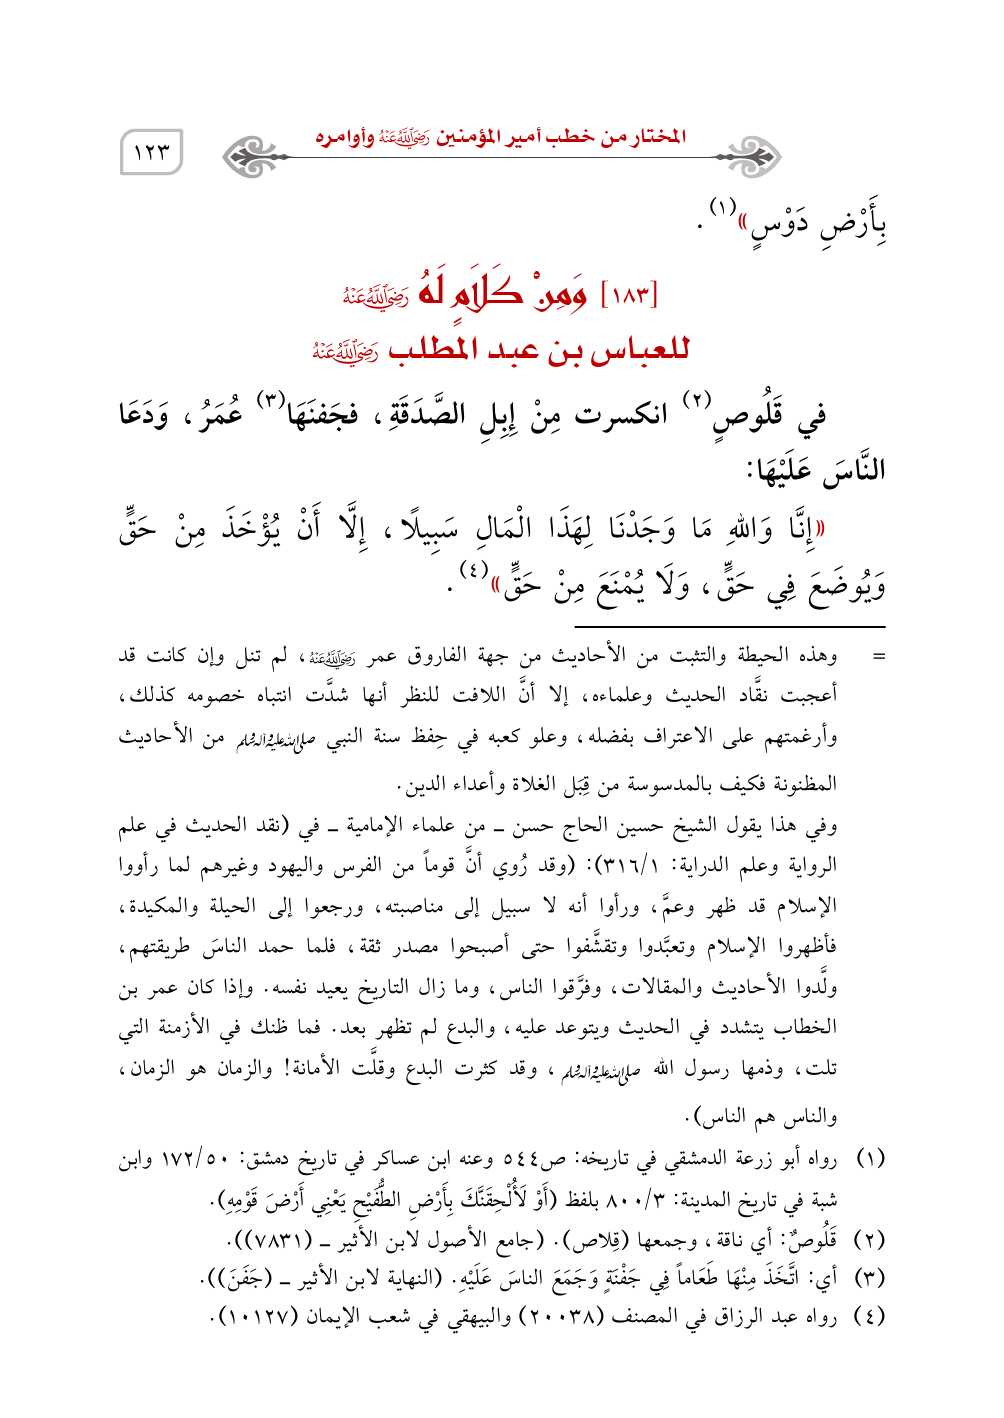 المختار من خطب أمير المؤمنين رَضِيَ اللَّهُ عَنْهُ وأوامره
١٢٣
بِأَرْضِ دَوْسٍ»(١).
[١٨٣] وَمِنْ كَلَامٍ لَهُ رَضِيَ اللَّهُ عَنْهُ
للعباس بن عبد المطلب رَضِيَ اللَّهُ عَنْهُ
في قَلُوصٍ(٢) انكسرت مِنْ إِبِلِ الصَّدَقَةِ، فجَفنَهَا(٣) عُمَرُ، وَدَعَا
النَّاسَ عَلَيْهَا:
«إِنَّا وَاللهِ مَا وَجَدْنَا لِهَذَا الْمَالِ سَبِيلًا، إِلَّا أَنْ يُؤْخَذَ مِنْ حَقٍّ
وَيُوضَعَ فِي حَقٍّ، وَلَا يُمْنَعَ مِنْ حَقٍّ»(٤).
= وهذه الحيطة والتثبت من الأحاديث من جهة الفاروق عمر رَضِيَ اللَّهُ عَنْهُ، لم تنل وإن كانت قد
أعجبت نقَّاد الحديث وعلماءه، إلا أنَّ اللافت للنظر أنها شدَّت انتباه خصومه كذلك،
وأرغمتهم على الاعتراف بفضله، وعلو كعبه في حِفظ سنة النبي صلى الله عليه وآله وسلم من الأحاديث
المظنونة فكيف بالمدسوسة من قِبَل الغلاة وأعداء الدين.
وفي هذا يقول الشيخ حسين الحاج حسن ــ من علماء الإمامية ــ في (نقد الحديث في علم
الرواية وعلم الدراية: ٣١٦/١): (وقد رُوي أنَّ قوماً من الفرس واليهود وغيرهم لما رأووا
الإسلام قد ظهر وعمَّ، ورأوا أنه لا سبيل إلى مناصبته، ورجعوا إلى الحيلة والمكيدة،
فأظهروا الإسلام وتعبَّدوا وتقشَّفوا حتى أصبحوا مصدر ثقة، فلما حمد الناسَ طريقتهم،
ولَّدوا الأحاديث والمقالات، وفرَّقوا الناس، وما زال التاريخ يعيد نفسه. وإذا كان عمر بن
الخطاب يتشدد في الحديث ويتوعد عليه، والبدع لم تظهر بعد. فما ظنك في الأزمنة التي
تلت، وذمها رسول الله صلى الله عليه وآله وسلم، وقد كثرت البدع وقلَّت الأمانة! والزمان هو الزمان،
والناس هم الناس).
(١) رواه أبو زرعة الدمشقي في تاريخه: ص٥٤٤ وعنه ابن عساكر في تاريخ دمشق: ١٧٢/٥٠ وابن
شبة في تاريخ المدينة: ٨٠٠/٣ بلفظ (أَوْ لَأُلْحِقَنَّكَ بِأَرْضِ الطُّفَيْحِ يَعْنِي أَرْضَ قَوْمِهِ).
(٢) قَلُوصٌ: أي ناقة، وجمعها (قِلاص). (جامع الأصول لابن الأثير ــ (٧٨٣١)).
(٣) أي: اتَّخَذَ مِنْهَا طَعَاماً فِي جَفْنَةٍ وَجَمَعَ الناسَ عَلَيْهِ. (النهاية لابن الأثير ــ (جَفَنَ)).
(٤) رواه عبد الرزاق في المصنف (٢٠٠٣٨) والبيهقي في شعب الإيمان (١٠١٢٧).